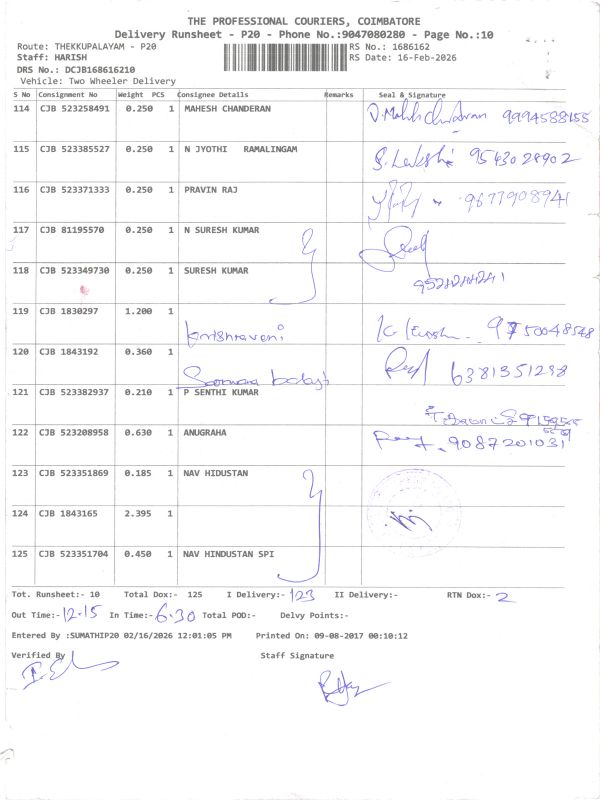 THE PROFESSIONAL COURIERS, COIMBATORE
Delivery Runsheet - P20 - Phone No.:9047080280 - Page No.:10
Route: THEKKUPALAYAM - P20 RS No.: 1686162
Staff: HARISH Delivery Details RS Date: 16-Feb-2026
DRS No.: DCJB168616210
Vehicle: Two Wheeler Delivery
S No Consignment No Weight PCS Consignee Name Remarks Seal & Signature
114 CJB 523258491 0.250 1 MAHESH CHANDERAN 9994588155
115 CJB 523385527 0.250 1 N JYOTHI RAMALINGAM 9543028902
116 CJB 523371333 0.250 1 PRAVIN RAJ 9677908941
117 CJB 81195570 0.250 1 N SURESH KUMAR
118 CJB 523349730 0.250 1 SURESH KUMAR
119 CJB 1830297 1.200 1 krishnaveni 9750048548
120 CJB 1843192 0.360 1 6381351298
121 CJB 523382937 0.210 1 P SENTHI KUMAR
122 CJB 523208958 0.630 1 ANUGRAHA 9087201031
123 CJB 523351869 0.185 1 NAV HIDUSTAN
124 CJB 1843165 2.395 1
125 CJB 523351704 0.450 1 NAV HINDUSTAN SPI
Tot. Runsheet:- 10 Total Dox:- 125 I Delivery:- 123 II Delivery:- RTN Dox:- 2
Out Time:- 12.15 In Time:- 6.30 Total POD:- Delvy Points:-
Entered By :SUMATHIP20 02/16/2026 12:01:05 PM Printed On: 09-08-2017 00:10:12
Verified By Staff Signature